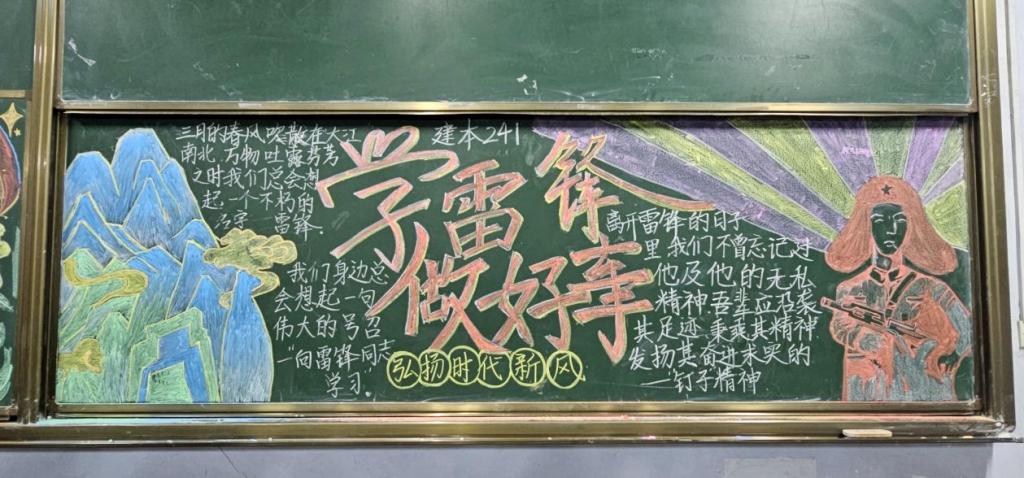 三月的春风吹散在大江
南北,万物吐露芬芳
之时我们总会想
起一个不朽的
名字 雷锋.
建本241
学雷锋
做好事
我们身边总
会想起一句
伟大的号召
一向雷锋同志
学习.
弘扬时代新风
离开雷锋的日子
里我们不曾忘记过
他及他的无私
精神.吾辈应沿袭
其足迹,秉乘其精神
发扬其奋进未哭的
—钉子精神